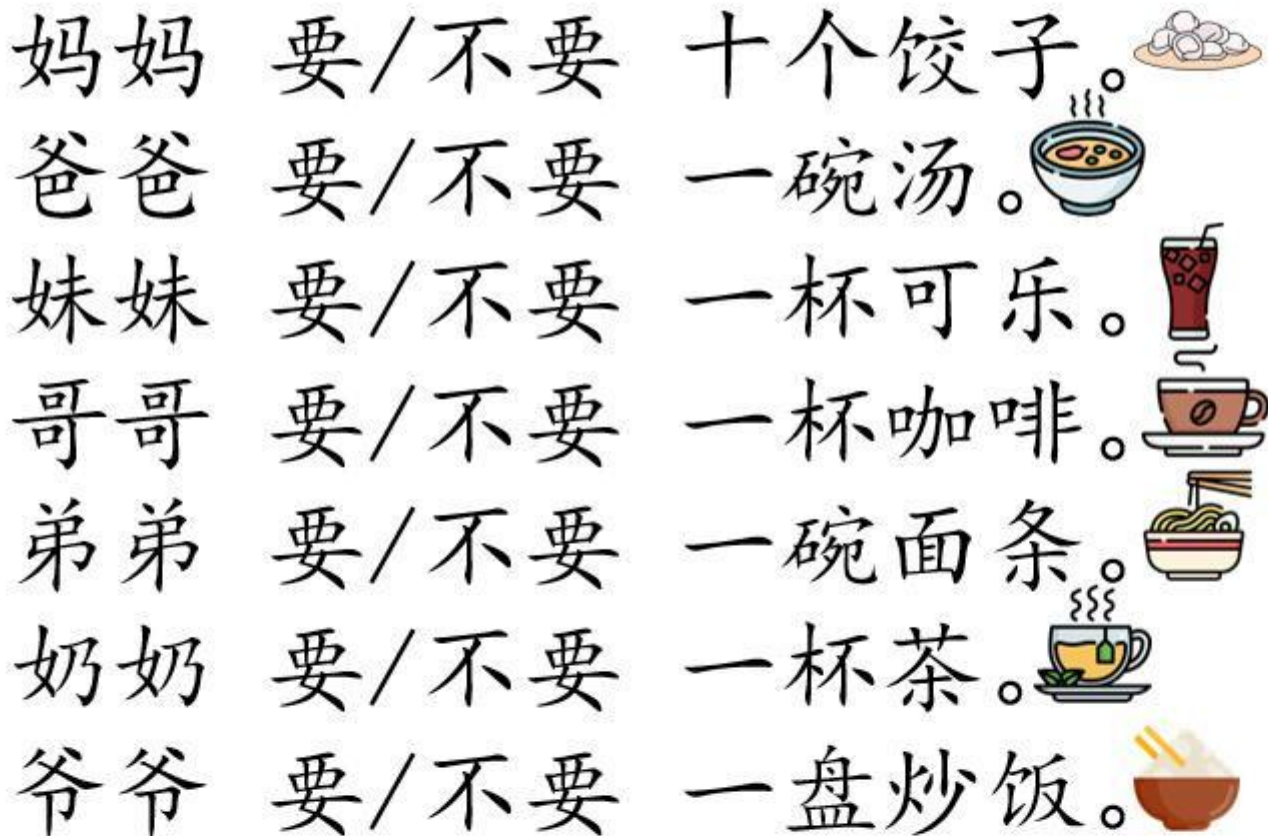 妈妈 要/不要 十个饺子。
爸爸 要/不要 一碗汤。
妹妹 要/不要 一杯可乐。
哥哥 要/不要 一杯咖啡。
弟弟 要/不要 一碗面条。
奶奶 要/不要 一杯茶。
爷爷 要/不要 一盘炒饭。